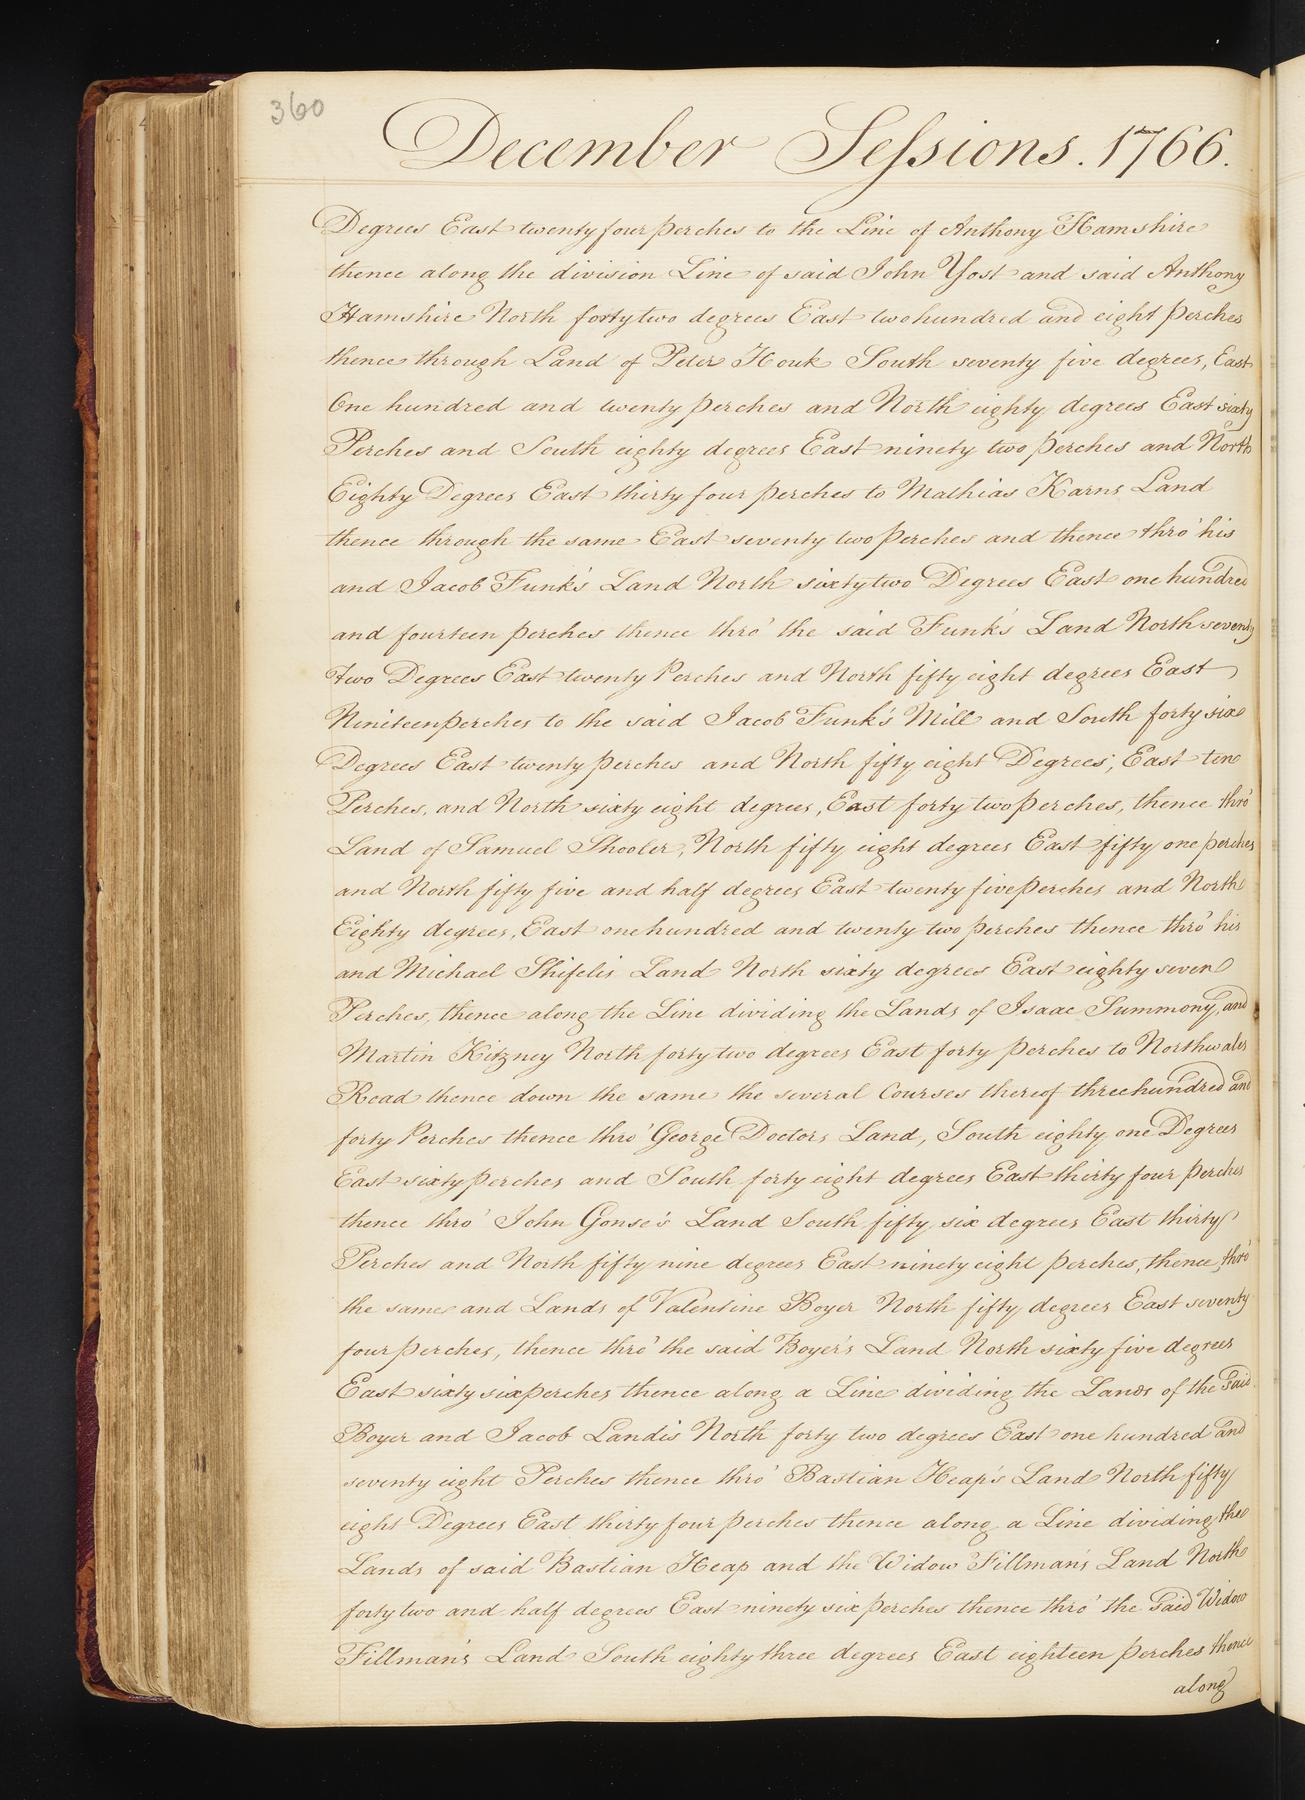 360
December Sessions. 1766.
Degrees East twenty four perches to the Line of Anthony Hamshire
thence along the division Line of said John Yost and said Anthony
Hamshire North forty two degrees East two hundred and eight perches
thence through Land of Peter Houk South seventy five degrees, East
One hundred and twenty perches and North eighty degrees East sixty
Perches and South eighty degrees East ninety two perches and North
Eighty Degrees East thirty four perches to Mathias Karns Land
thence through the same East seventy two perches and thence thro' his
and Jacob Funk's Land North sixty two Degrees East one hundred
and fourteen perches thence thro' the said Funk's Land North seventy
two Degrees East twenty Perches and North fifty eight degrees East
Nineteen perches to the said Jacob Funk's Mill and South forty six
Degrees East twenty perches and North fifty eight Degrees, East ten
Perches, and North sixty eight degrees, East forty two perches, thence thro'
Land of Samuel Shooler, North fifty eight degrees East fifty one perches
and North fifty five and half degrees East twenty five perches and North
Eighty degrees, East one hundred and twenty two perches thence thro' his
and Michael Shifelis Land North sixty degrees East eighty seven
Perches, thence along the Line dividing the Lands of Isaac Summony, and
Martin Kitzney North forty two degrees East forty perches to Northwales
Road thence down the same the several Courses thereof three hundred and
forty Perches thence thro' George Doctors Land, South eighty one Degrees
East sixty perches and South forty eight degrees East thirty four perches
thence thro' John Gonse's Land South fifty six degrees East thirty
Perches and North fifty nine degrees East ninety eight perches, thence, thro'
the same and Lands of Valentine Boyer North fifty degrees East seventy
four perches, thence thro' the said Boyer's Land North sixty five degrees
East sixty six perches thence along a Line dividing the Lands of the said
Boyer and Jacob Landis North forty two degrees East one hundred and
seventy eight Perches thence thro' Bastian Heap's Land North fifty
eight Degrees East thirty four perches thence along a Line dividing the
Lands of said Bastian Heap and the Widow Fillman's Land North
forty two and half degrees East ninety six perches thence thro' the said Widow
Fillman's Land South eighty three degrees East eighteen perches thence
along